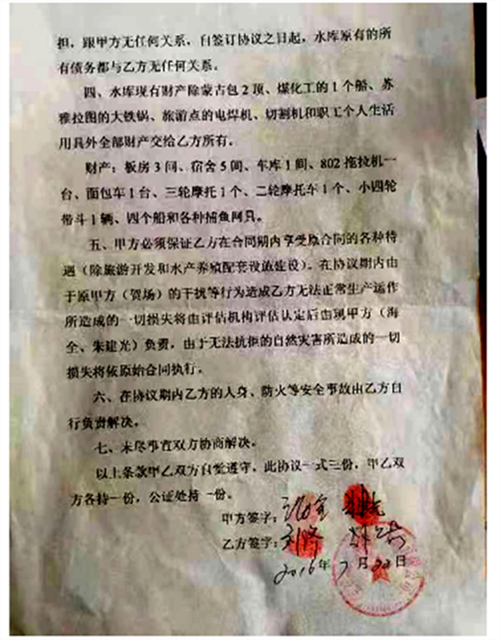 担，跟甲方无任何关系，自签订协议之日起，水库原有的所
有债务都与乙方无任何关系。
四、水库现有财产除蒙古包2顶、煤化工的1个船、苏
雅拉图的大铁锅、旅游点的电焊机、切割机和职工个人生活
用具外全部财产交给乙方所有。
财产：板房3间、宿舍5间、车库1间、802拖拉机一
台、面包车1台、三轮摩托1个、二轮摩托车1个、小四轮
带斗1辆、四个船和各种捕鱼网具。
五、甲方必须保证乙方在合同期内享受原合同的各种待
遇（除旅游开发和水产养殖配套设施建设）。在协议期内由
于原甲方（贺场）的干扰等行为造成乙方无法正常生产运作
所造成的一切损失将由评估机构评估认定后由现甲方（海
全、朱建光）负责，由于无法抗拒的自然灾害所造成的一切
损失将依原始合同执行。
六、在协议期内乙方的人身、防火等安全事故由乙方自
行负责解决。
七、未尽事宜双方协商解决。
以上条款甲乙双方自觉遵守，此协议一式三份，甲乙双
方各持一份，公证处持一份。
甲方签字：
乙方签字：
2016年7月22日